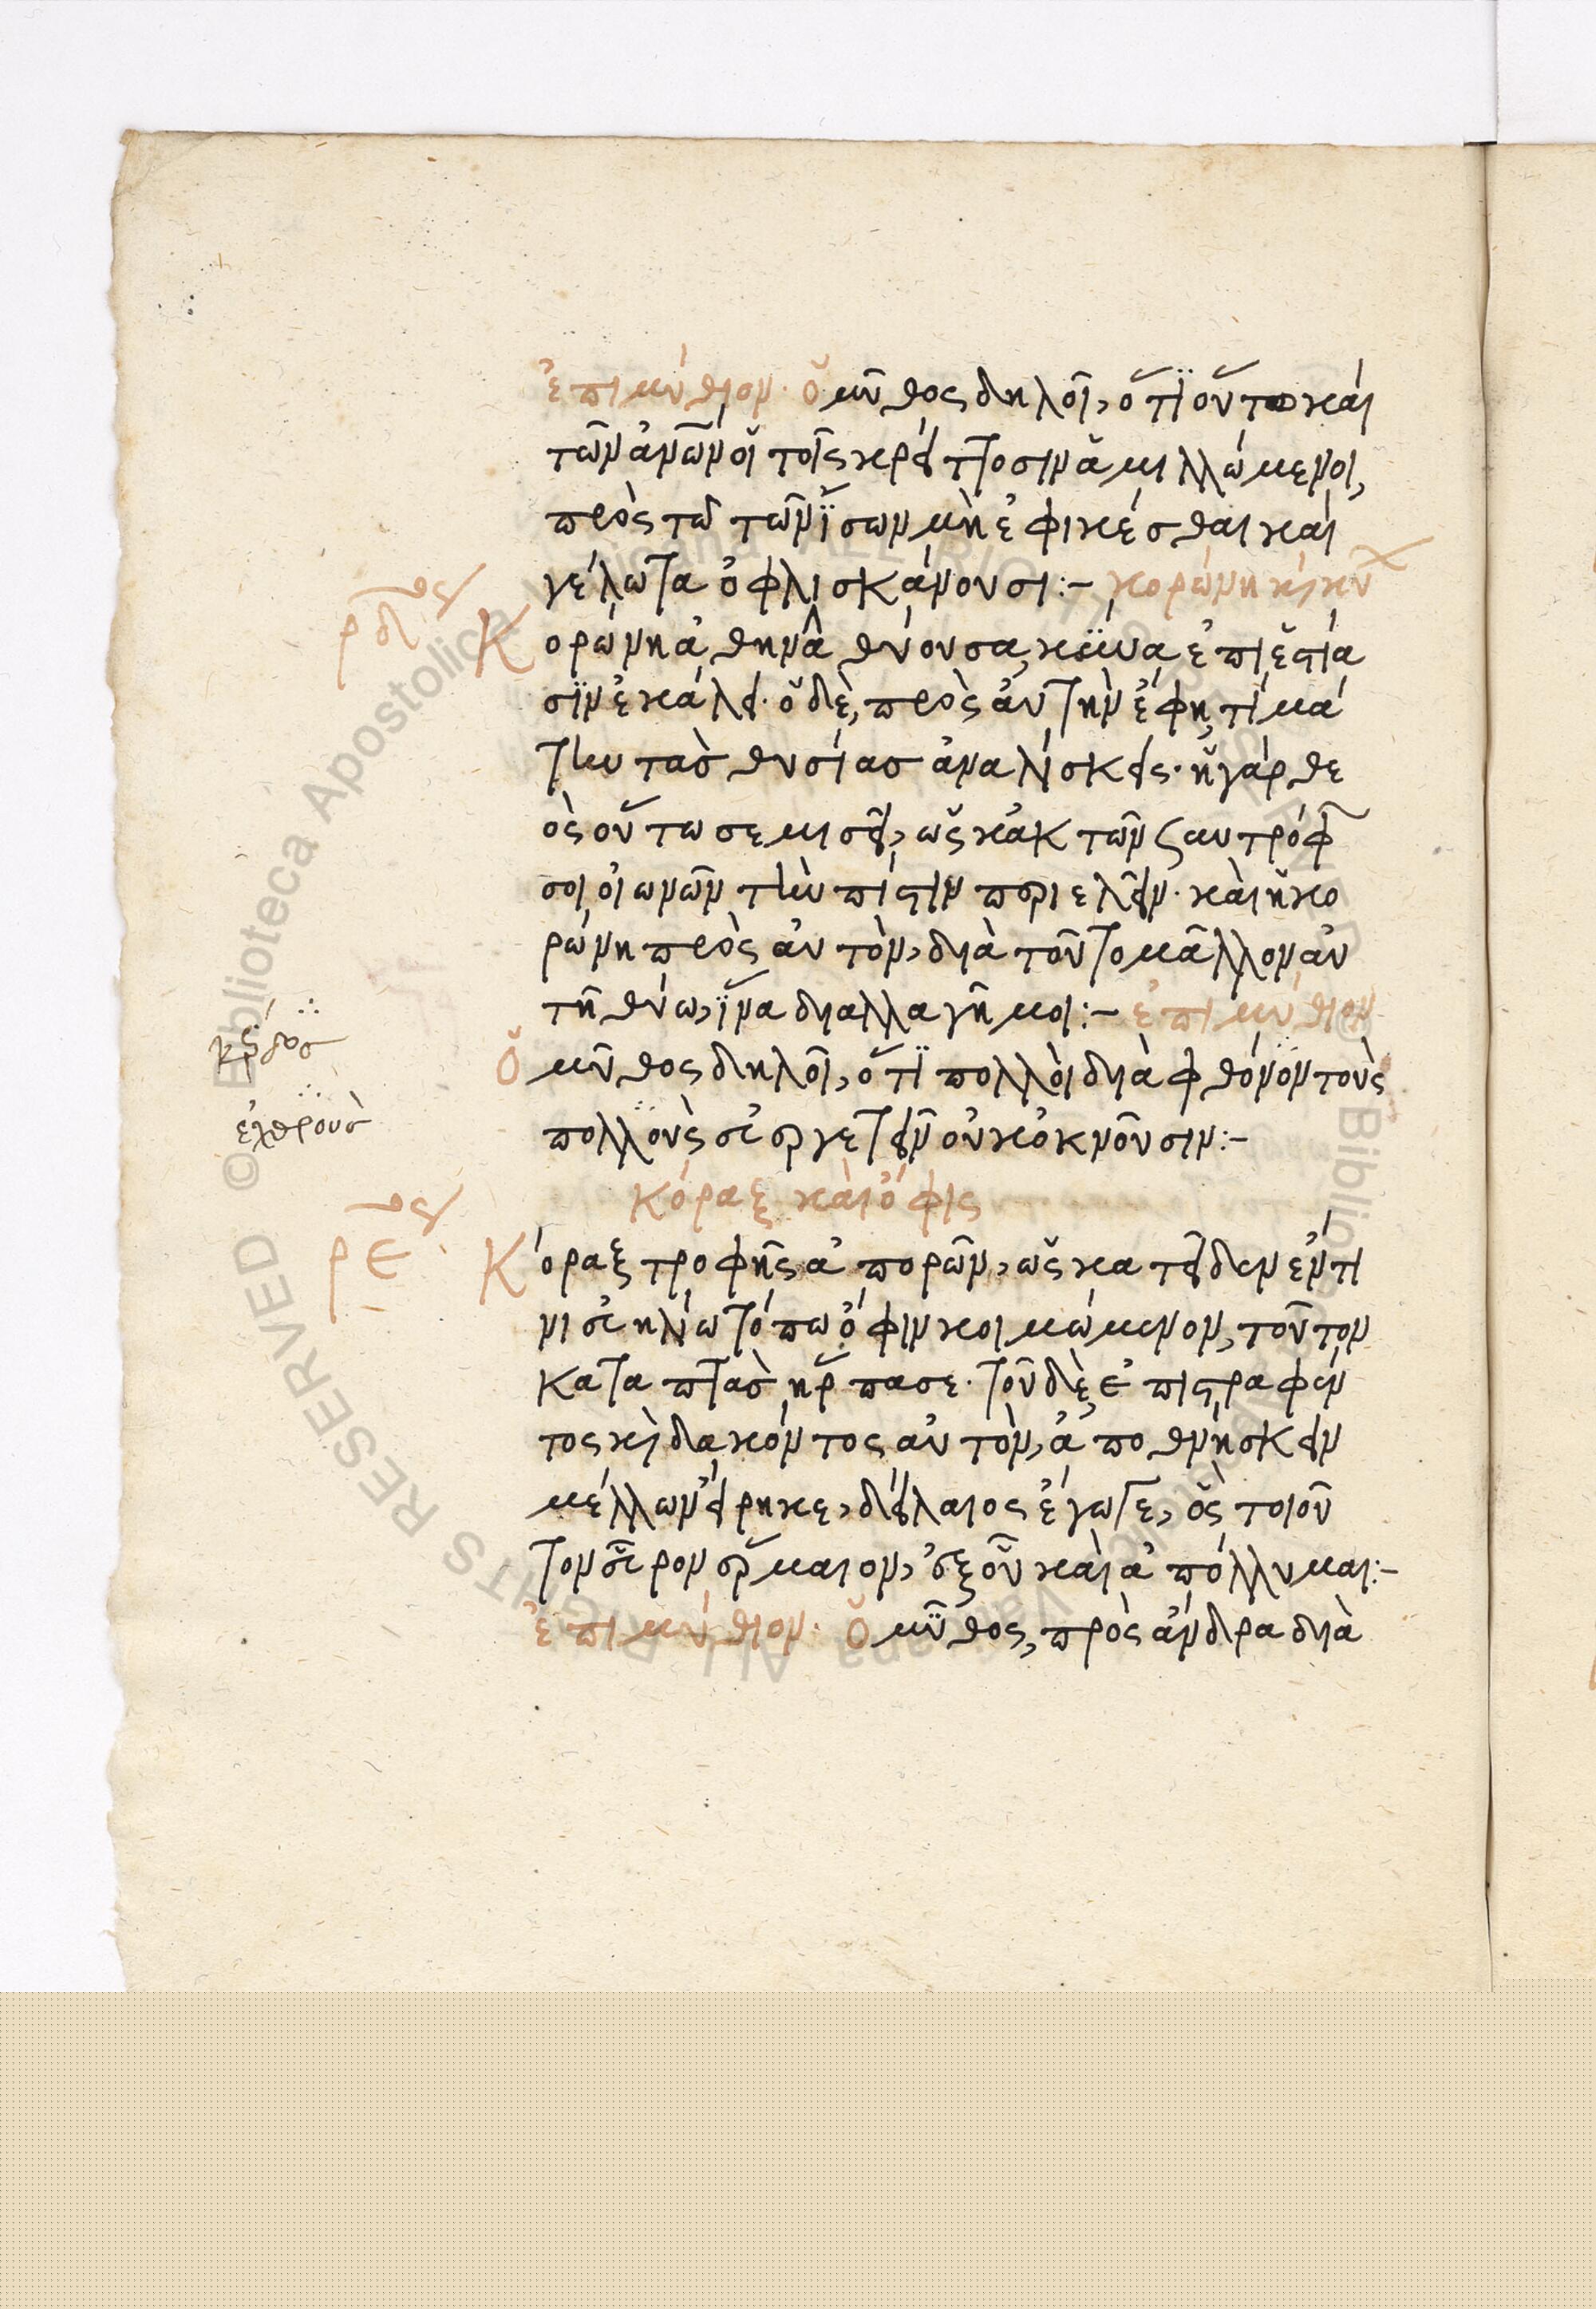 ἐπιμύθιον. ὁ μῦθος δηλοῖ, ὅτι οὕτω καὶ
τῶν ἀνῶν οἱ τοῖς κρείττοσιν ἁμιλλώμενοι,
πρὸς τῶ τῶν ἴσων μὴ ἐφικέσθαι καὶ
γέλωτα ὀφλισκάνουσι:- κορώνη κὶ κύ
ρδ Κορώνη ἀθηνᾶ θύουσα, κύνα ἐπὶ ἑστία
σιν ἐκάλει. ὁ δὲ, πρὸς αὐτὴν ἔφη, τί μά
την τὰσ θυσίασ ἀναλίσκεις. ἡ γάρ θε
ὸς οὕτω σε μισεῖ, ὡς κἀκ τῶν συντρόφ
σοι οἰωνῶν τὴν πίστιν περιελεῖν. καὶ ἡ κο
ρώνη πρὸς αὐτὸν, διὰ τοῦτο μᾶλλον αὐ
τῆ θύω, ἵνα διαλλαγῆ μοι:- ἐπιμύθιον
ὁ μῦθος δηλοῖ, ὅτι πολλοὶ διὰ φθόνον τοὺς
πολλοὺς εὐεργετεῖν οὐκ ὀκνοῦσιν:-
κέρδοσ
ἐχθροὺσ
Κόραξ καὶ ὄφις
ρε Κόραξ τροφῆς ἀπορῶν, ὡς κατεῖδεν ἔν τι
νι εὐηλίω τόπω ὄφιν κοιμώμενον, τοῦτον
καταπτὰσ ἥρπασε. τοῦ δὲ ἐπιστραφέν
τος κὶ δακόντος αὐτὸν, ἀποθνήσκειν
μέλλων εἴρηκε, δείλαιος ἔγωγε, ὃς τοιοῦ
τον εὗρον ἕρμαιον, ἐξ οὗ καὶ ἀπόλλυμαι:-
ἐπιμύθιον. ὁ μῦθος, πρὸς ἄνδρα διὰ